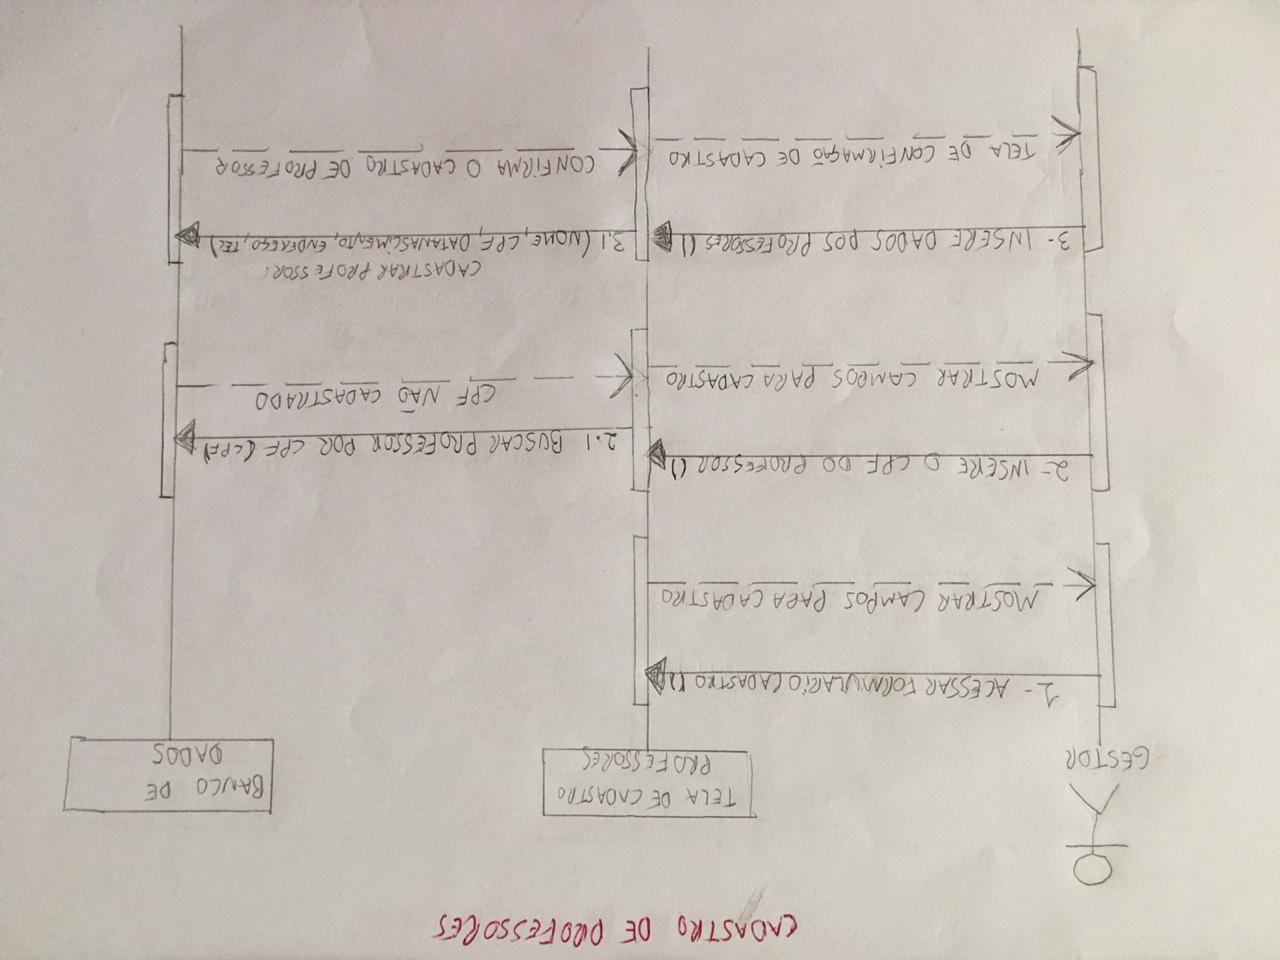 CADASTRO DE PROFESSORES
GESTOR
TELA DE CADASTRO
PROFESSORES
BANCO DE
DADOS
1- ACESSAR FORMULARIO CADASTRO ()
MOSTRAR CAMPOS PARA CADASTRO
2- INSERE O CPF DO PROFESSOR ()
2.1 BUSCAR PROFESSOR POR CPF (CPF)
CPF NÃO CADASTRADO
MOSTRAR CAMPOS PARA CADASTRO
CADASTRAR PROFESSOR:
3- INSERE DADOS DOS PROFESSORES ()
3.1 (NOME, CPF, DATANASCIMENTO, ENDEREÇO, TEL)
CONFIRMA O CADASTRO DE PROFESSOR
TELA DE CONFIRMAÇÃO DE CADASTRO